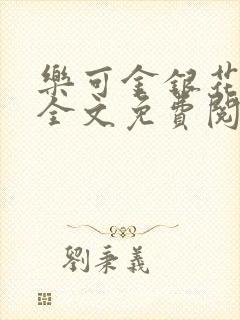 樂可金銀花
全文免費閱
劉秉義